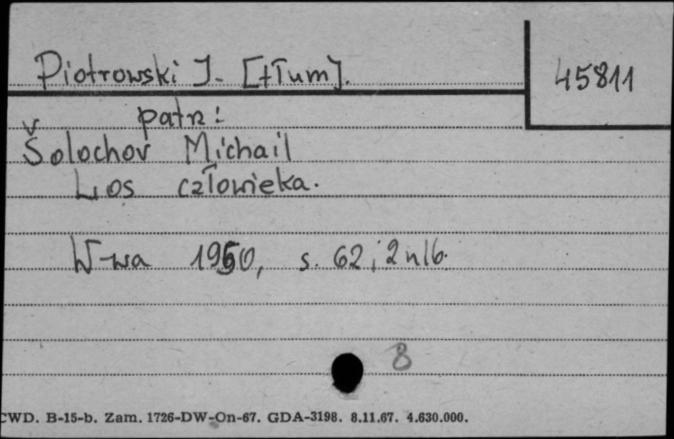 Piotrowski J. [tłum].
45811
patrz:
Šolochov Michail
Los człowieka.
W-wa 1960, s. 62, 2 nlb.
8
CWD. B-15-b. Zam. 1726-DW-On-67. GDA-3198. 8.11.67. 4.630.000.